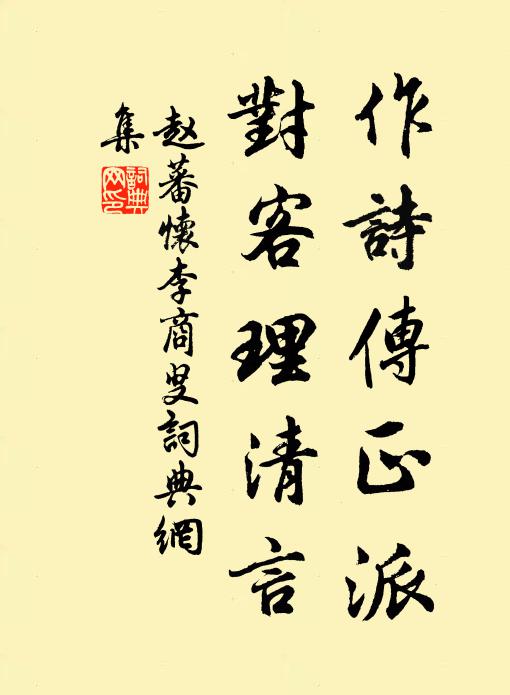 作詩傳正派
對客理清言
赵蕃懷李商叟詞典網
集
詞典網印